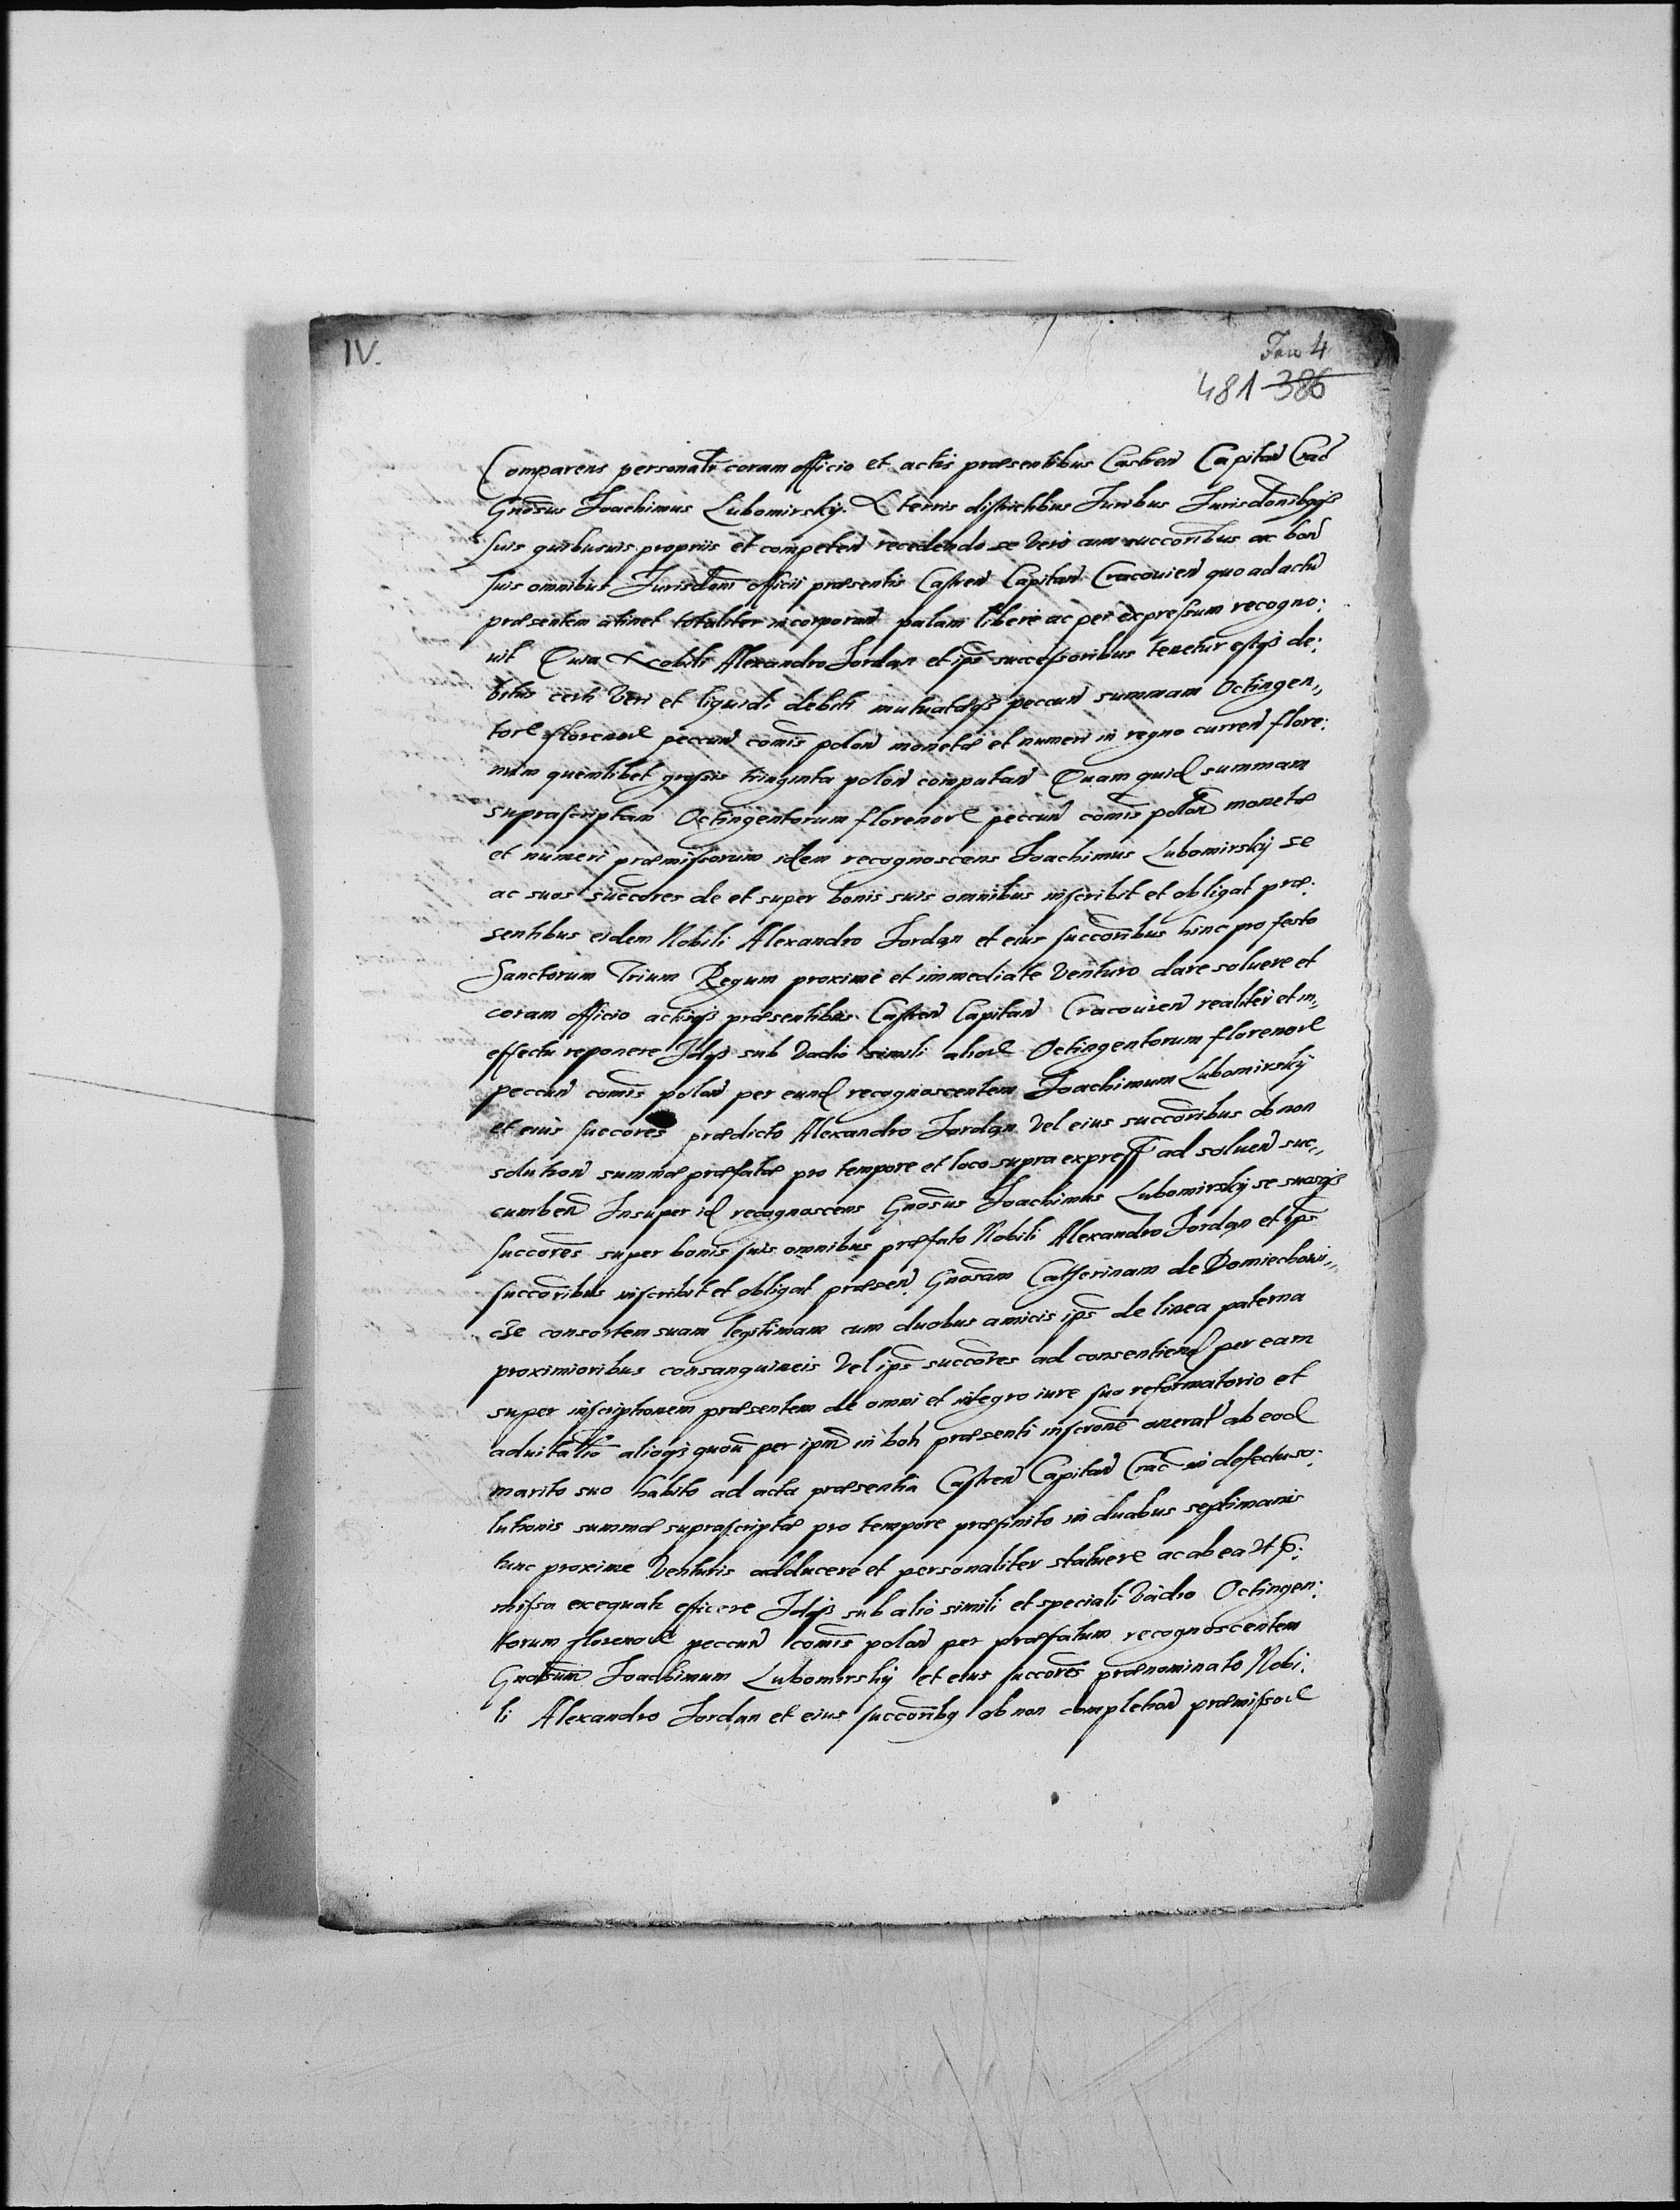 IV.
Fasc 4
481 386
Comparens personalr coram officio et actis præsentibus Castren Capitan Crac
Gnosus Joachimus Lubomirsky. A terris districtibus Juribus Jurisdonibqs
suis quibusuis propriis et competen recedendo se vero cum succoribus ac bon
suis omnibus Jurisdoni officii præsentis Castren Capitan Cracouien quo ad actu
præsentem attinet totaliter incorporan palam libere ac per expressum recogno:
uit Quia Nobili Alexandro Jordan et ips successoribus tenetur estqs de:
bitus certi veri et liquidi debiti mutuatæqs peccun summam Octingen„
tor florenor peccun comis polon monetæ et numeri in regno curren flore:
num quemlibet grossis tringinta polon computan Quam quid summam
suprascriptam Octingentorum florenor peccun comis polon monetæ
et numeri præmissorum idem recognoscens Joachimus Lubomirsky se
ac suos succores de et super bonis suis omnibus inscribit et obligat præ:
sentibus eidem Nobili Alexandro Jordan et eius succoribus hinc pro festo
Sanctorum Trium Regum proxime et immediate venturo dare soluere et
coram officio actisqs præsentibus Castren Capitan Cracouien realiter et in„
effectu reponere Idqs sub vadio simili alior Octingentorum florenor
peccun comis polon per eund recognoscentem Joachimum Lubomirsky
et eius succores prædicto Alexandro Jordan vel eius succoribus ob non
solution summæ præfatæ pro tempore et loco supra express ad soluen suc„
cumben Insuper id recognoscens Gnosus Joachimus Lubomirsky se suosqs
succores super bonis suis omnibus præfato Nobili Alexandro Jordan et ips
succoribus inscribit et obligat præsen. Gnosam Catherinam de Domiechowi„
cze consortem suam legitimam cum duobus amicis ips de linea paterna
proximioribus consanguineis vel ips succores ad consentiend per eam
super inscriptionem præsentem de omni et integro iure suo reformatorio et
aduitalitio alioqs quouis per ipm in bon præsenti inscrone onerat ab eod
marito suo habito ad acta præsentia Castren Capitan Crac in defectu so:
lutionis summæ suprascriptæ pro tempore præfinito in duabus septimanis
tunc proxime venturis adducere et personaliter statuere ac ab ea ut p:
missa exequatr efficere Idqs sub alio simili et speciali vadio Octingen:
torum florenor peccun comis polon per præfatum recognoscentem
Gnosum Joachimum Lubomirsky et eius succores prænominato Nobi:
li Alexandro Jordan et eius succoribq ob non completion præmissor